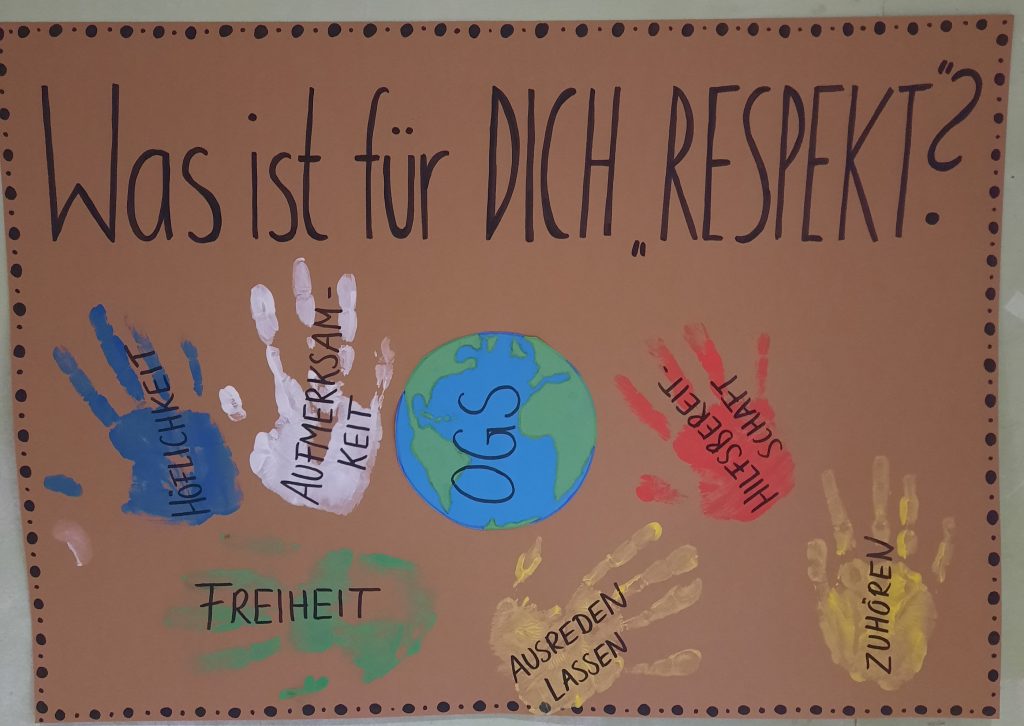 Was ist für DICH „RESPEKT“?
HÖFLICHKEIT
AUFMERKSAM-
KEIT
OGS
HILFSBEREIT-
SCHAFT
FREIHEIT
AUSREDEN
LASSEN
ZUHÖREN